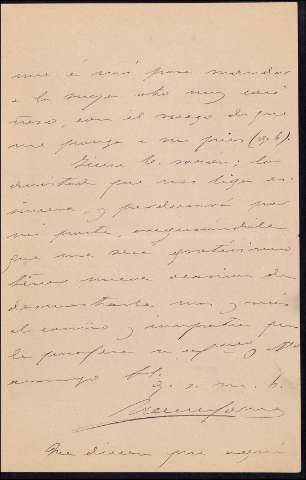 me é mis para mandar
a la suya otro muy cari
ñoso, con el ruego de que
me ponga a sus pies (q. b.)
Tiene V. razón; la
amistad que nos liga es
sincera, y perdurará por
mi parte, asegurándole
que me será gratísimo
tener nueva ocasion de
demostrarle mas y más
el cariño y simpatia que
le profesa su afmo y
amigo
q. s. m. b.
Que dicen por aquí